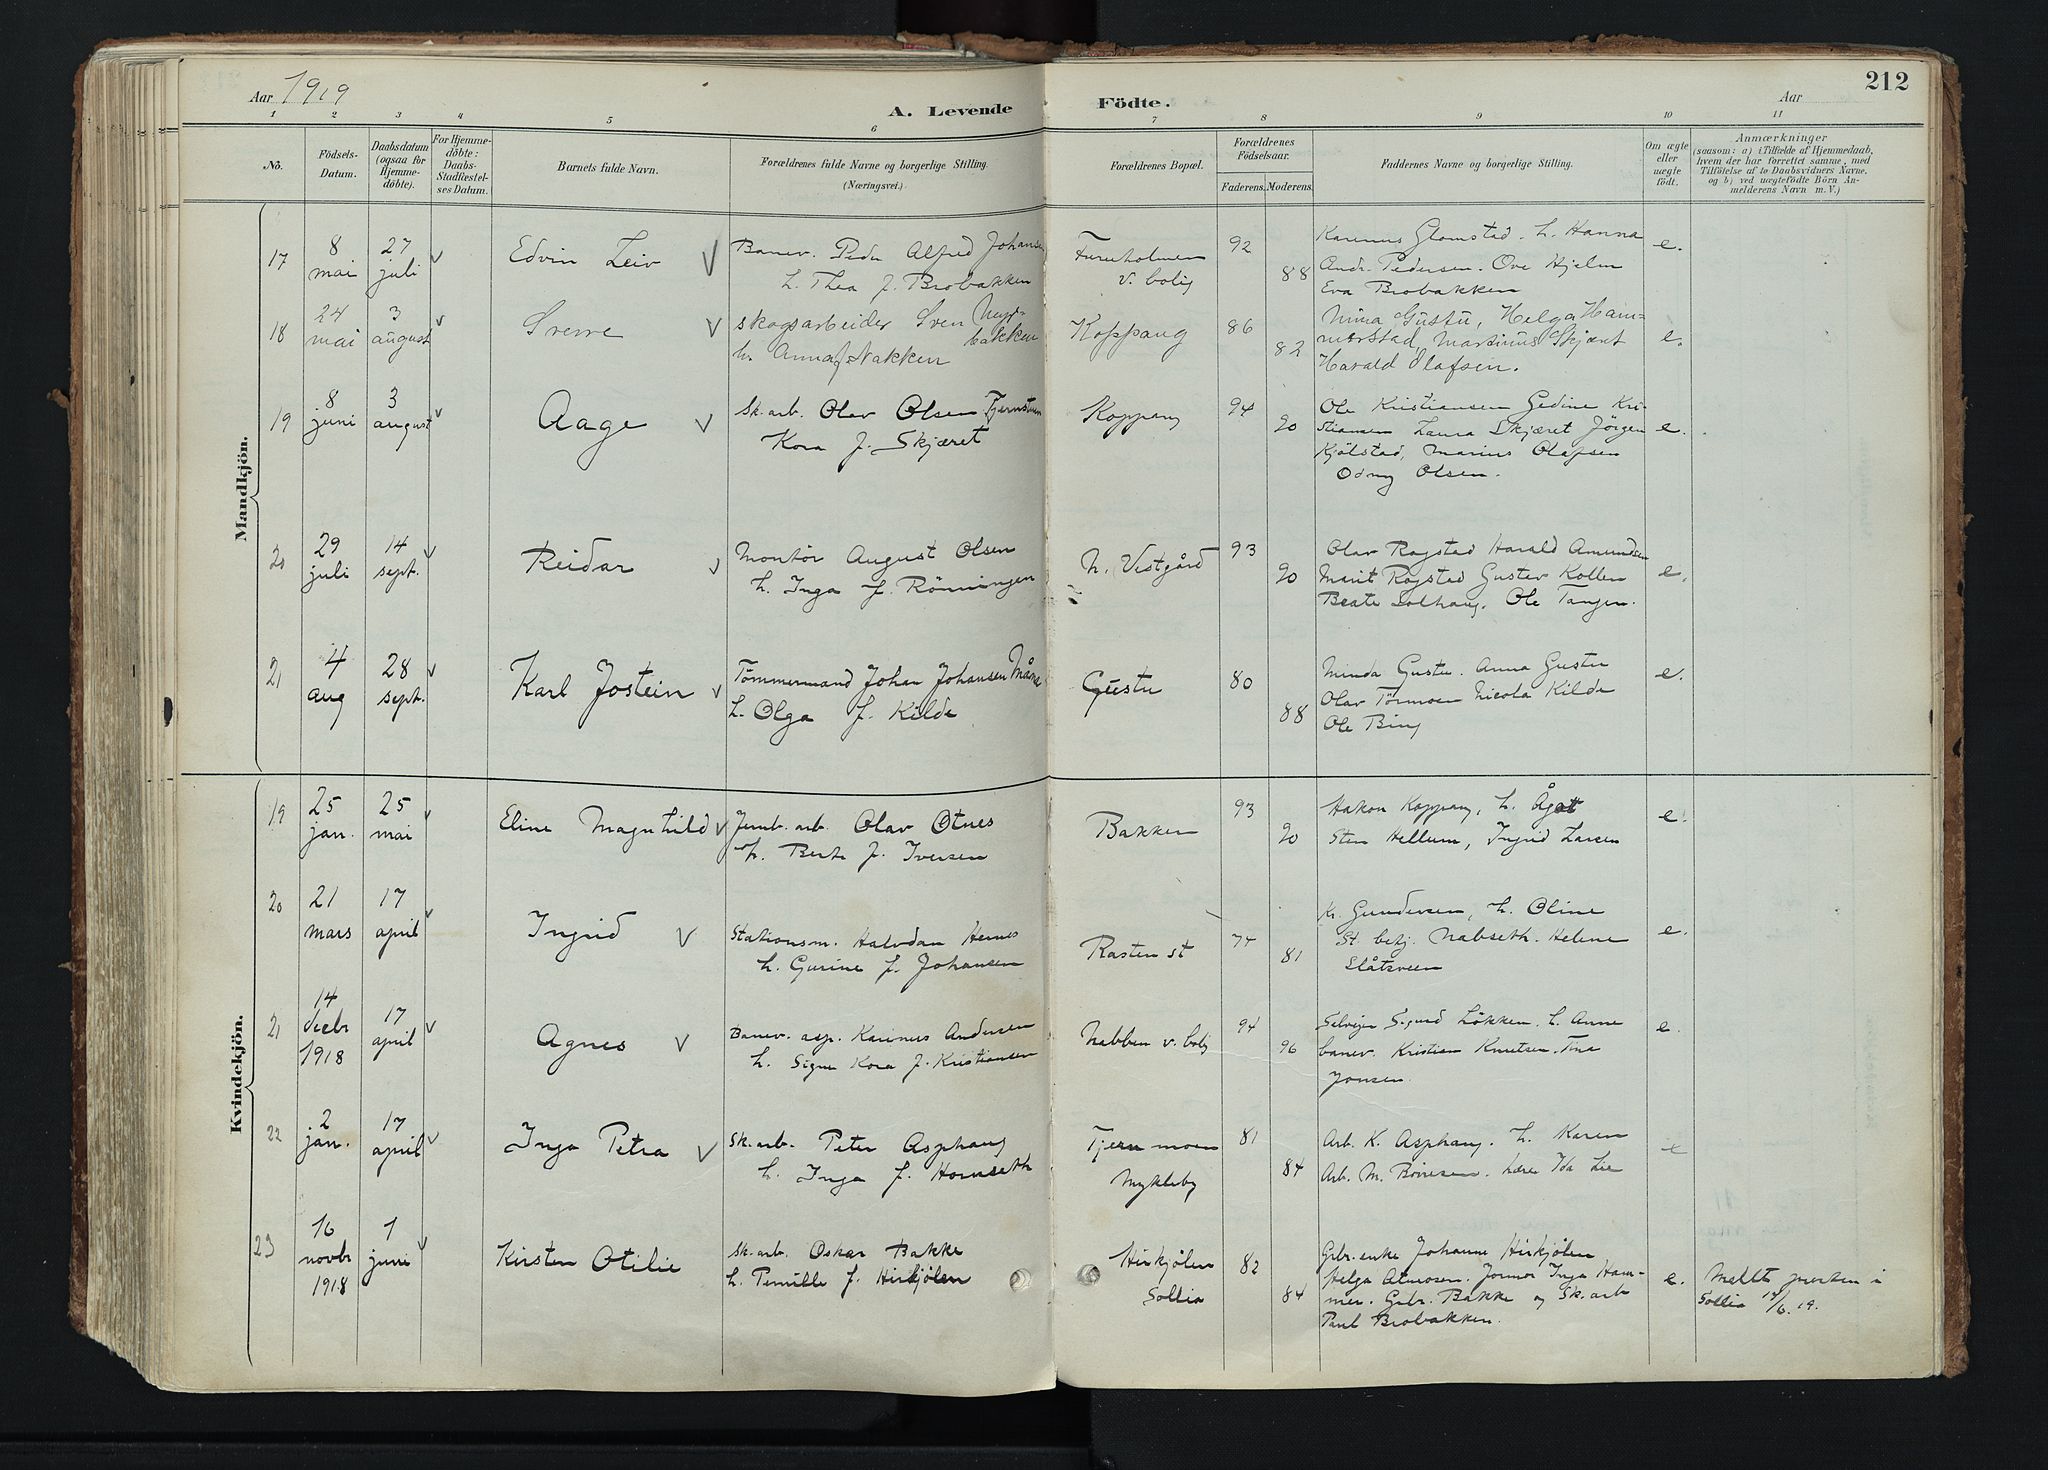 Aar 1919
A. Levende Födte.
Aar
212
1 2 3 4 5 6 7 8 9 10 11
Nö.
Födsels-Datum.
Daabsdatum (ogsaa for Hjemmedöbte).
For Hjemmedöbte: Daabs-Stadfæstelses Datum.
Barnets fulde Navn.
Forældrenes fulde Navne og borgerlige Stilling. (Næringsvei.)
Forældrenes Bopæl.
Forældrenes Födselsaar.
Faderens. Moderens.
Faddernes Navne og borgerlige Stilling.
Om ægte eller uægte födt.
Anmærkninger
(saasom: a) i Tilfælde af Hjemmedaab, hvem der har forrettet samme, med Tilföielse af to Daabsvidners Navne, og b) ved uægtefödte Börn Anmelderens Navn m. V.)
Mandkjön.
17 8 mai 27 juli v Edvin Leiv v
Banev. Peder Alfred Johansen
h. Thea f. Brobakken
Furuholmen
v. bolig
92 88
Karenus Glomstad. h. Hanna
Andr. Pedersen. Ove Hjelm
Eva Brobakken
e.
18 24 mai 3 august v Sverre v
skogsarbeider Sven Myrbakken
h. Anna f. Nakken
Koppang
86 82
Mina Gustu, Helga Ham-
merstad, Martinius Skjæret
Harald Olafsen.
e.
19 8 juni 3 august v Aage v
Sk. arb. Olav Olsen
Kora f. Skjæret
Koppang
94 90
Ole Kristiansen Gedine Kri-
stiansen Laura Skjæret Jörgen
Kjölstad, Marius Olafsen
Odny Olsen.
e.
20 29 juli 14 sept. v Reidar v
Montör August Olsen
h. Inga f. Rönningen
N. Vestgård
93 90
Olav Rogstad Harald Amundsen
Marit Rogstad Gustav Kollen
Beate Solhaug. Ole Tangen.
e.
21 4 aug 28 sept. v Karl Jostein v
Tömmermand Johan Johansen
h. Olga f. Kilde
Gustu
80 88
Minda Gustu. Anna Gustu
Olav Törmoen Nicola Kilde
Ole Bing
e.
Kvindekjön.
19 25 jan. 25 mai v Eline Magnhild v
Jernb. arb. Olav Otnes
h. Berte f. Iversen
Bakken
93 90
Hakon Koppang, h. Ågot
Sten Hellum, Ingrid Larsen
e.
20 21 mars 17 april v Ingrid v
Stationsm. Halvdan Hernes
h. Gurine f. Johansen
Rasten st
74 81
Kr. Gundersen, h. Oline
St. betj. Nabseth. Helene
Slåtsveen
e.
21 14 decbr 1918 17 april v Agnes v
Banev. asp. Karinus Andersen
h. Signe Kora f. Kristiansen
Nabben v. bolig
94 96
Selveier Sigurd Lökken. h. Anne
banev. Kristian Knutsen. Tina
Jonsen.
e.
22 2 jan. 17 april v Inga Petra v
Sk. arb. Peter Asphaug
h. Inga f. Hornseth
Tjernmoen
Mykleby
81 84
Arb. K. Asphaug. h. Karen
Arb. M. Börresen. Lærer Ida Lie
e
23 16 novbr 1918 1 juni v Kirsten Otilie
Sk. arb. Oskar Bakke
h. Pernille f. Hirkjölen
Hirkjölen
Sollia
82 84
Gbr. enke Johanne Hirkjölen
Helga Atneosen. Jormor Inga Ham-
mer. Gbr. Bakke og Sk. arb
Paul Brobakken.
e.
Meldt presten i
Sollia 14/6. 19.